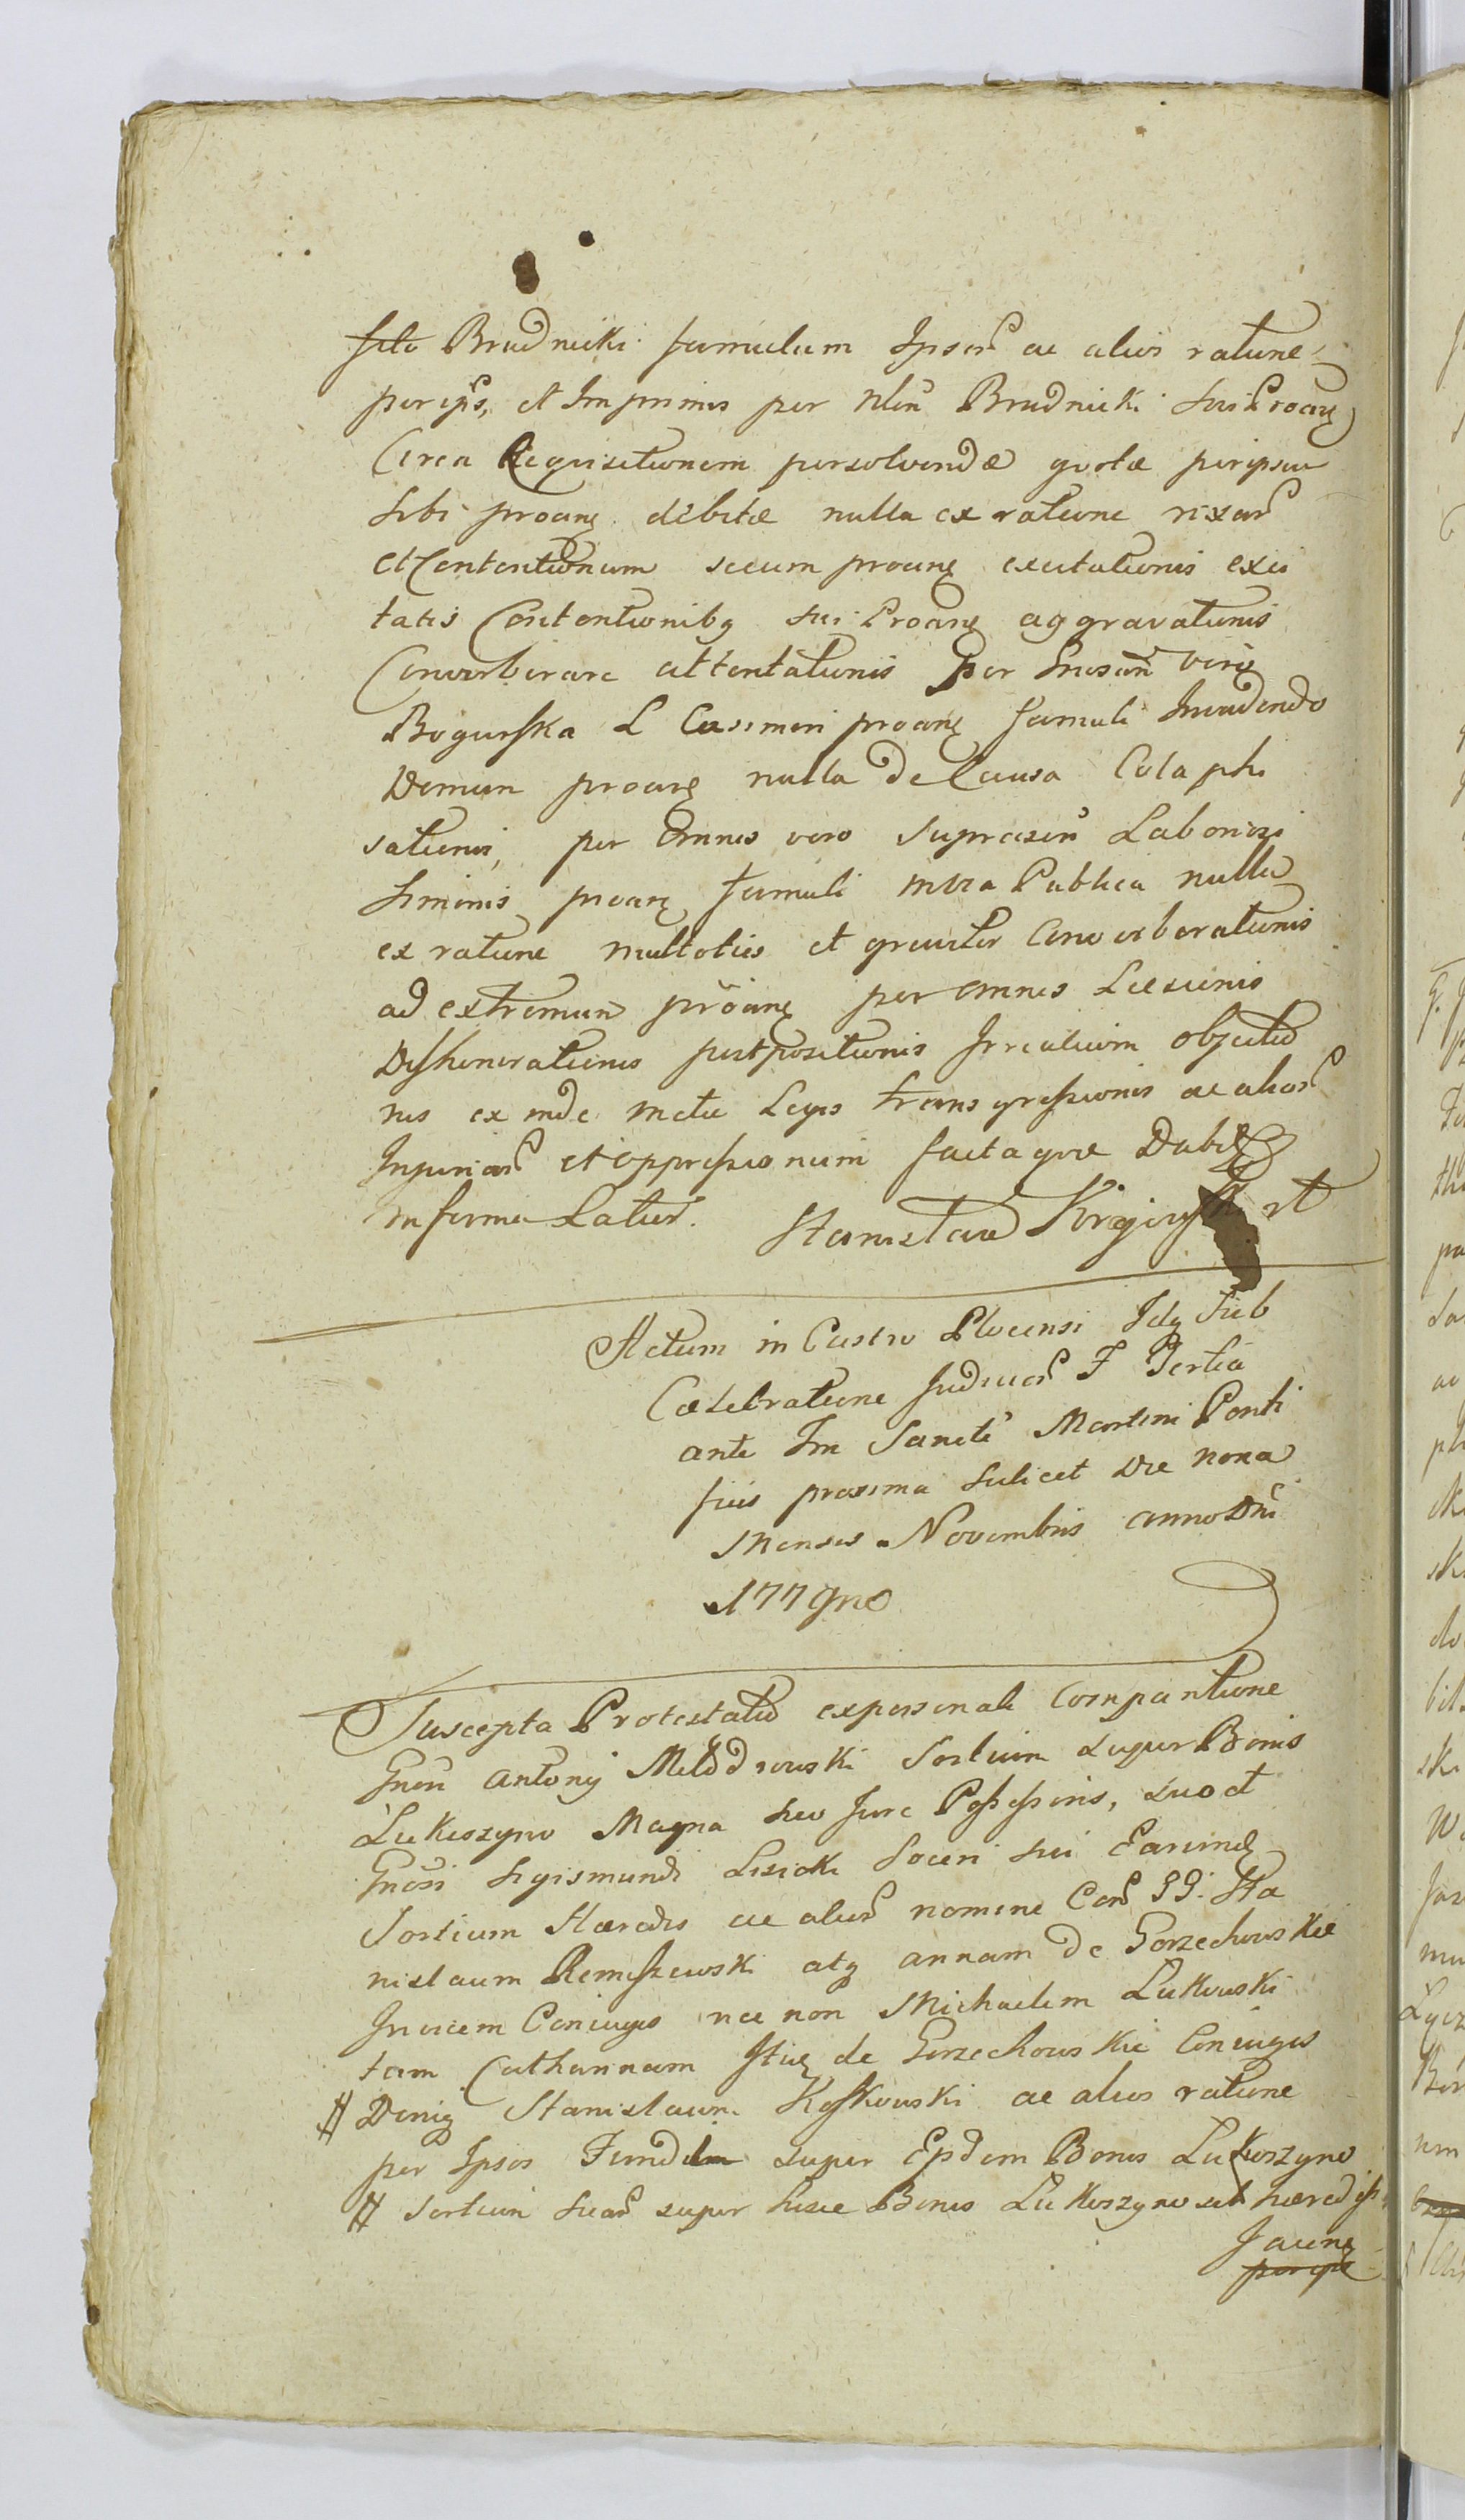 Brudnicki famulum Ipsor ac alios ratione
per ips, et Imprimis per Nlem Brudnicki sui Proans
Circa Requisitionem persolvendæ quotæ per ipsum
sibi proans debitæ nulla ex ratione rixar
et Contentionum secum proans excitationis exci
tatis Contentionibq sui Proans aggravationis
Converberare attentationis per Gnosam vero
Bogurska L Casimiri proans famuli Invadendo
Domum proans nulla de Causa Colaphi
sationis, per Omnes vero supraexn Laboriosi
Siminis proans famuli intra Publica nulla
ex ratione multoties et graviter Converberationis
ad extremum proans per omnes Læsionis
Dishonorationis postpositionis Irrealium objectio
nis ex inde metu Legis transgressionis ac alior
Injuriar et oppressionum facta quæ Dabit
in forma Latiori. Stanislaus
Actum in Castro Plocensi Idq sub
Cœlebratione Judicior F Tertia
ante Fm Sancti Martini Ponti
ficis proxima scilicet Die nona
Mensis Novembris anno Dni
1779no
Suscepta Protestatio ex personali Comparitione
Gnosi Antonij Młodzowski Sortium super Bonis
Łukoszyno Magna seu Jure Possessoris, suo et
Gnosi Sigismundi Lisicki Soceri sui Earumdem
Sortium Hæredis ac alior nomine Con GG. Sta
nislaum Rembiewski atq Annam de Gorzechowskie
Invicem Coniuges nec non Michaelem Łukowski
tum Catharinam Itidem de Gorzechowskie Coniuges
# Deniq Stanislaum Koskowski ac alios ratione
per Ipsos super Ejsdem Bonis Łukoszyno
# Sortium suar super hisce Bonis Łukoszyno